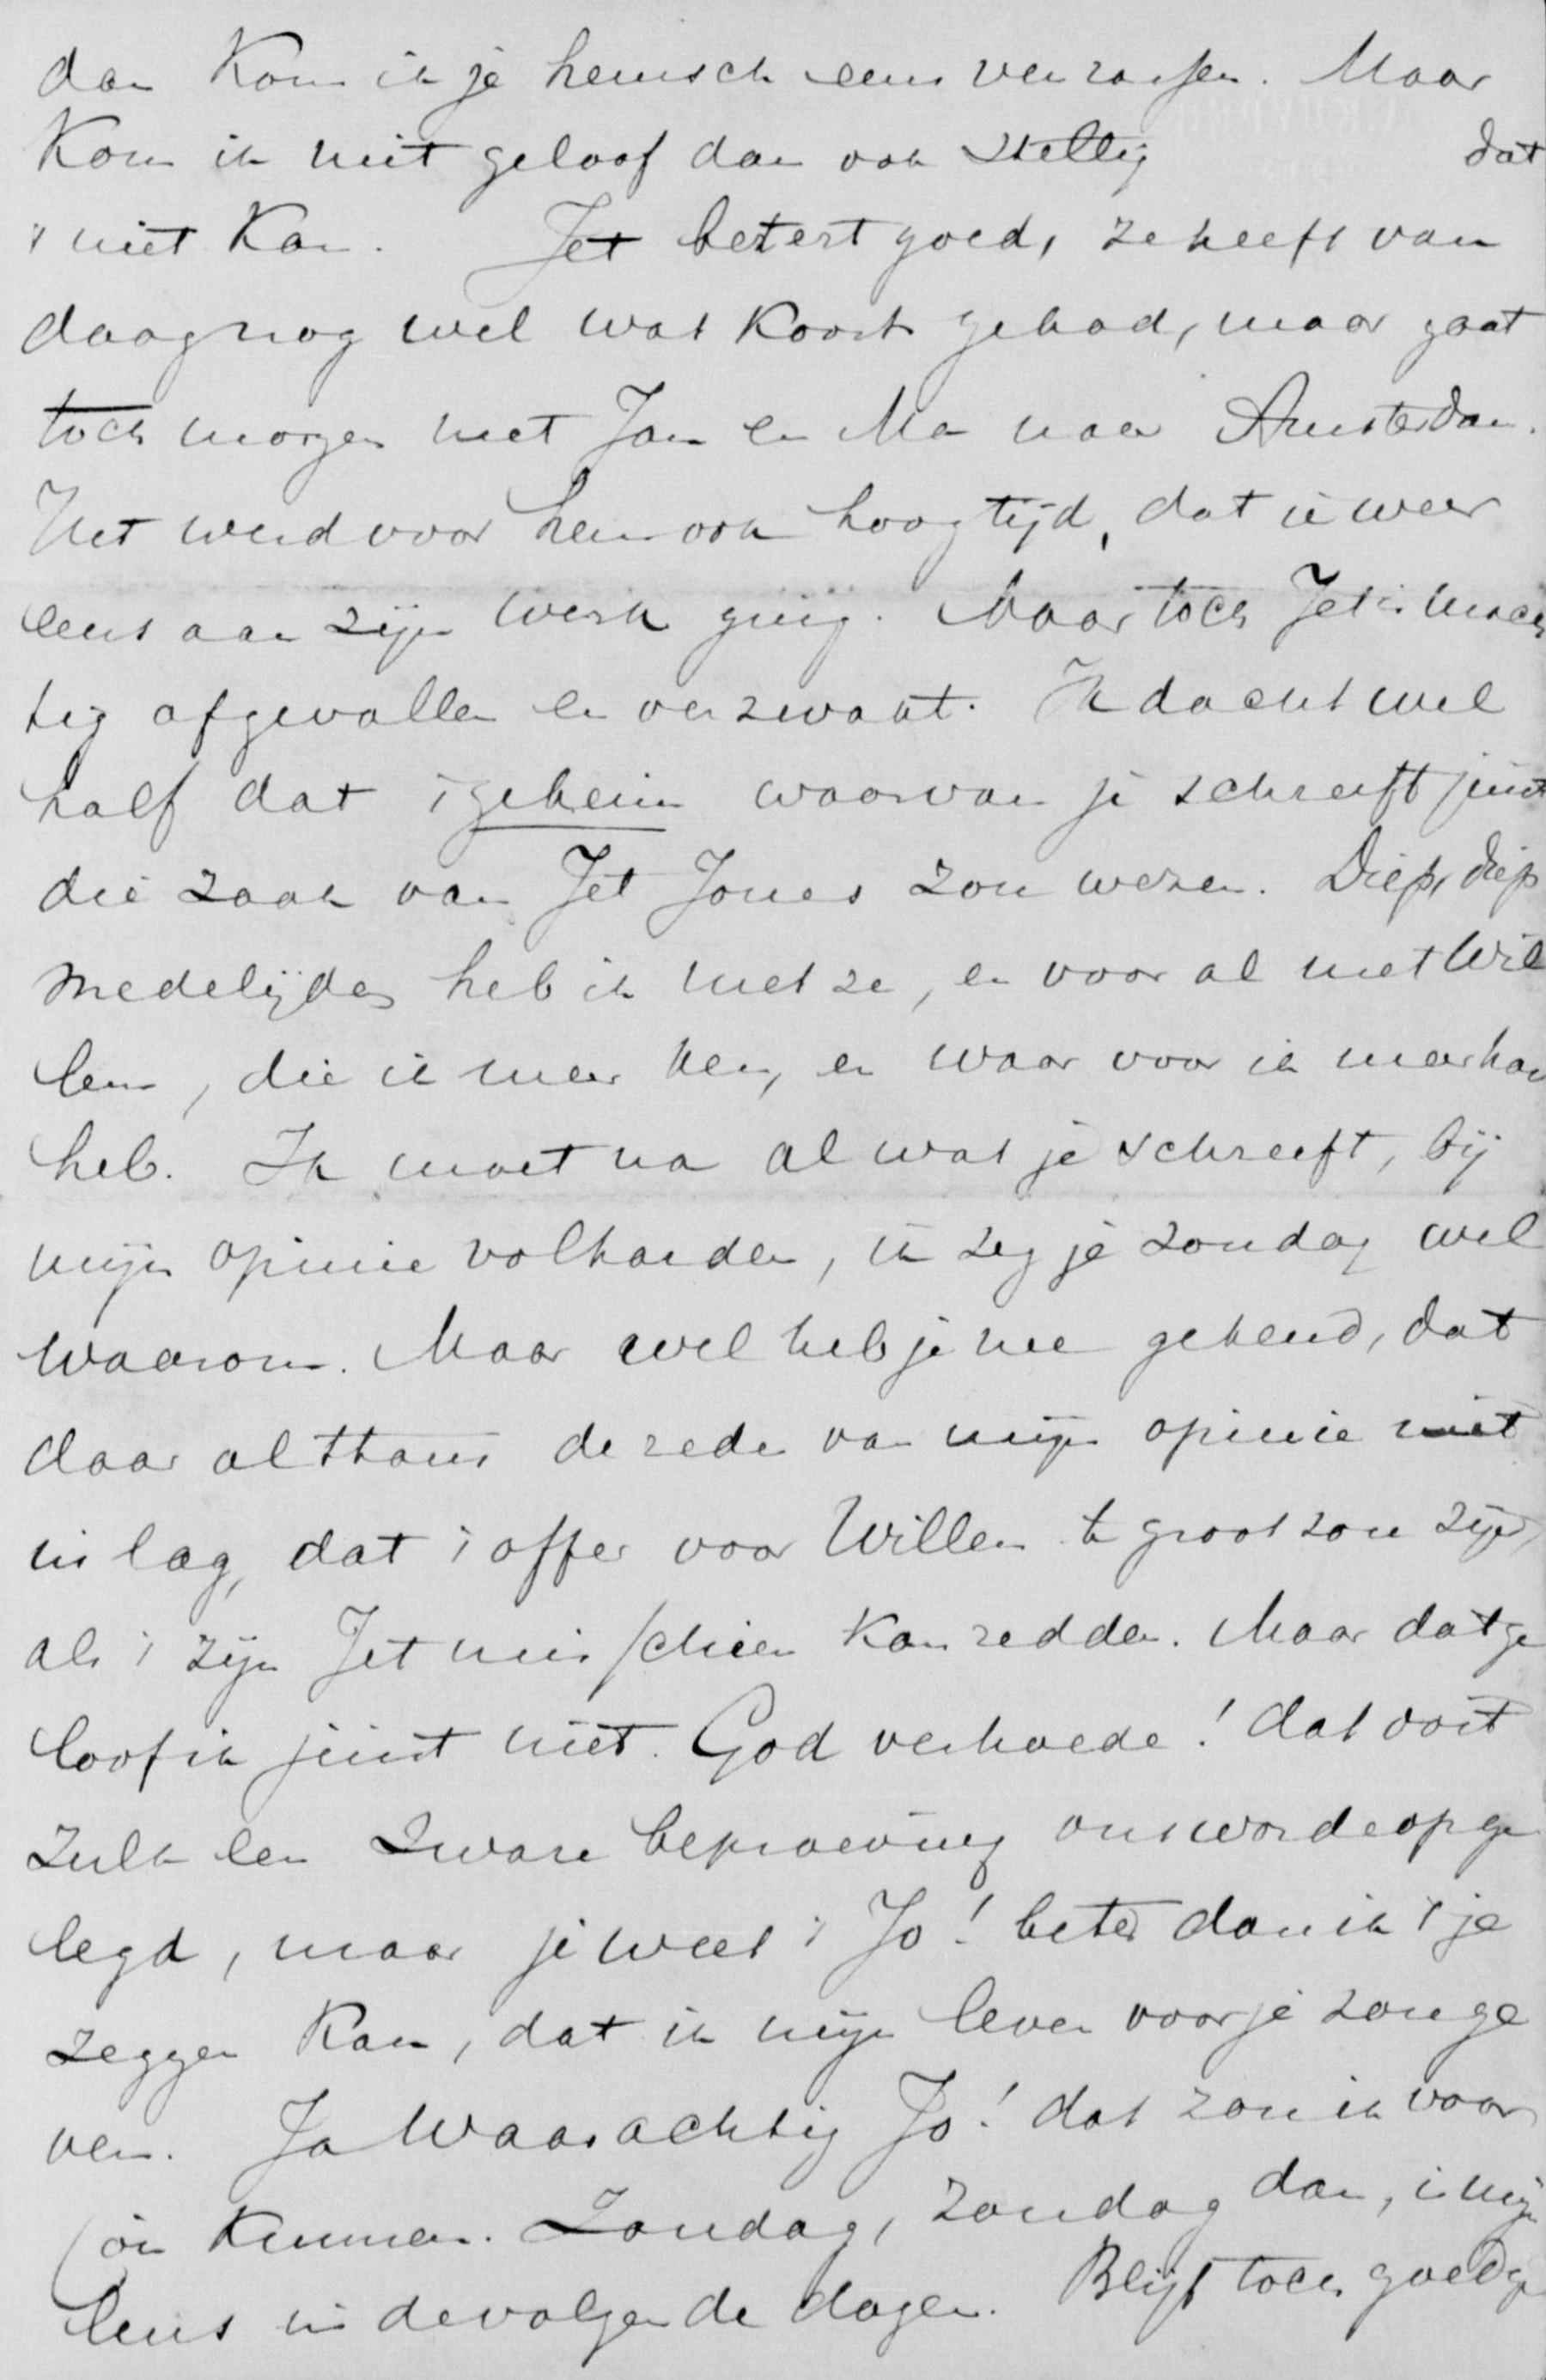 dan Kom ik je heusch eens verrassen. Maar
Kom ik niet geloof dan ook stellig dat
't niet Kan. Jet betert goed, ze heeft van
daag nog wel wat Koorts gehad, maar gaat
toch morgen met Jan en Ma naar Amsterdam.
Het werd voor hem ook hoog tijd, dat ie weer
eens aan zijn werk ging. Maar toch Jet is mach
tig afgevallen en verzwakt. Ik dacht wel
half dat 't geheim waarvan je schreeft juist
die zaak van Jet Jones zou wezen. Diep, diep
medelijden heb ik met ze, en voor al met Wil
lem, die ik meer ken, en waar voor ik meer hart
heb. Ik moet na al wat je schreeft, bij
mijn opinie volharden, ik zeg je Zondag wel
waarom. Maar wel heb je me gekend, dat
daar althans de reden van mijn opinie niet
in lag, dat 't offer voor Willem te groot zou zijn,
als 't zijn Jet misschien Kan redden. Maar dat ge
loof ik juist niet. God verhoede! dat ooit
zulk een zware beproeving ons worde opge
legd, maar je weet 't Jo! beter dan ik 't je
zeggen Kan, dat ik mijn leven voor je zou ge
ven. Ja Waarachtig Jo! dat zou ik voor
je Kunnen. Zondag, Zondag dan, is mijn
leus in de volgende dagen. Blijf toch goed ge